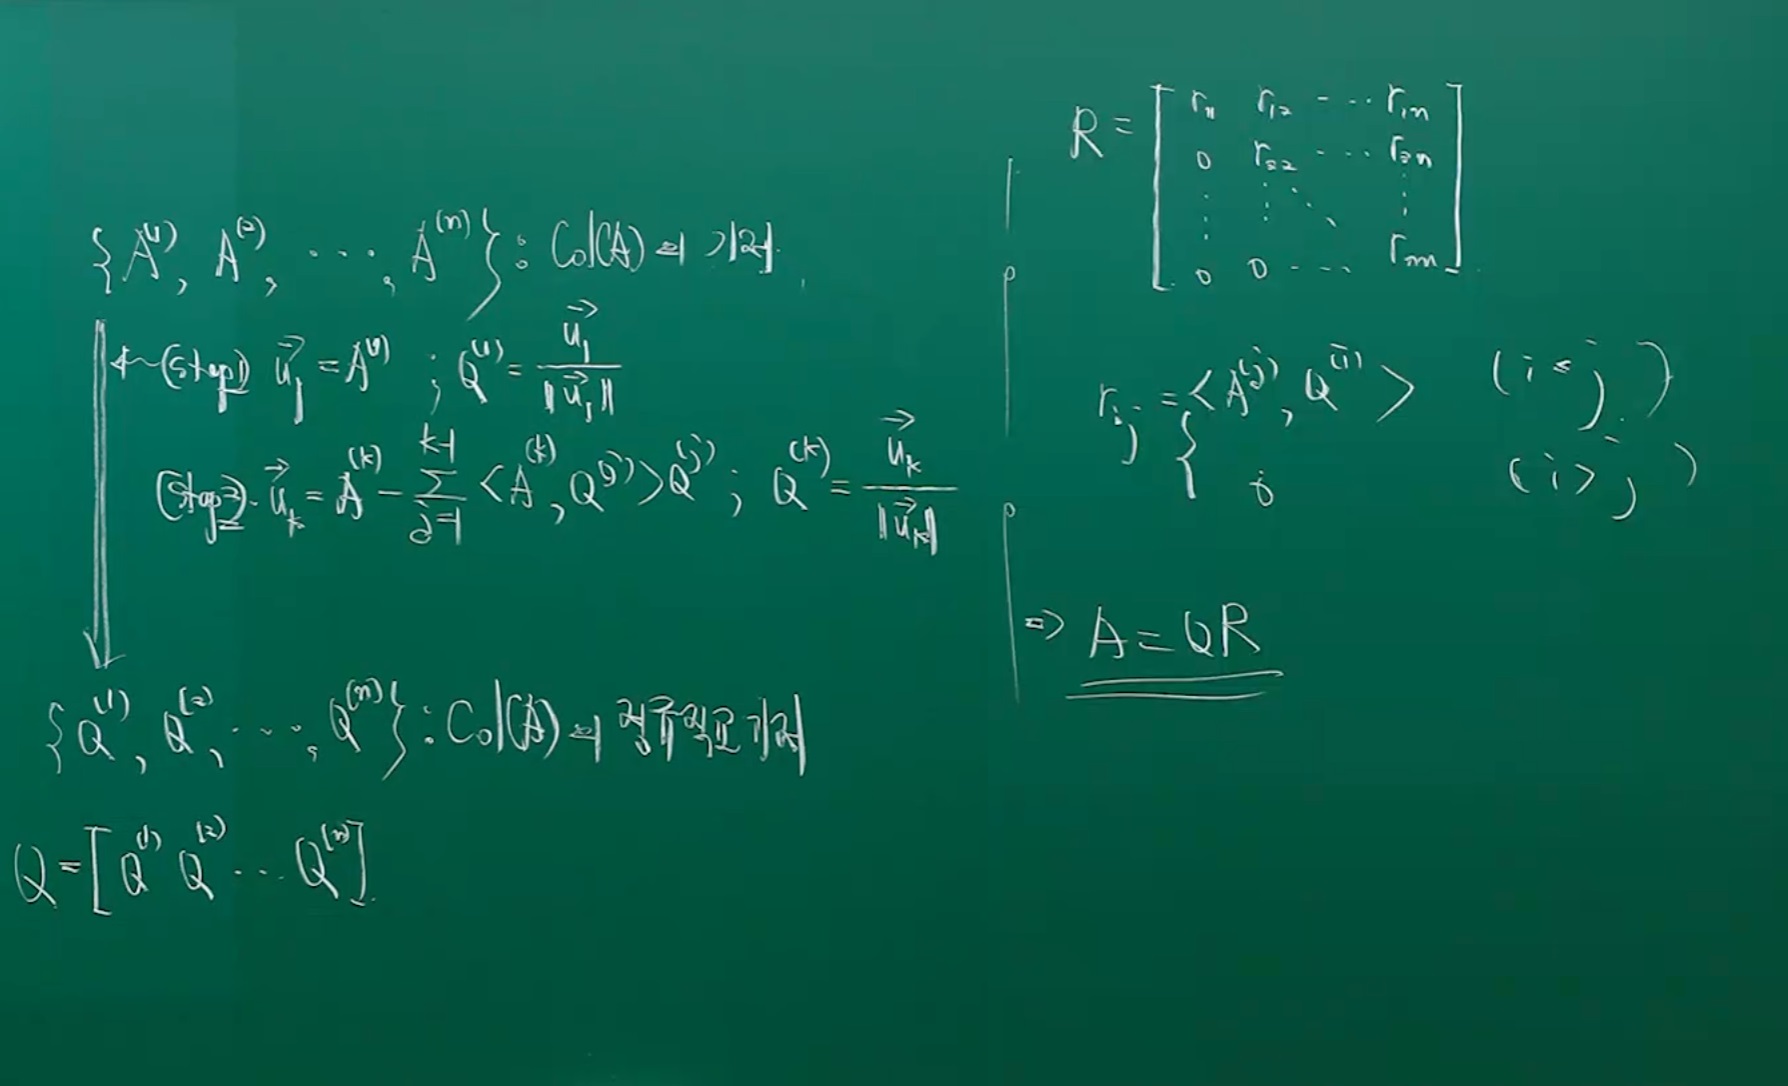 {A⁽¹⁾, A⁽²⁾, ⋯, A⁽ⁿ⁾} : Col(A)의 기저.
(step1) u⃗₁ = A⁽¹⁾ ; Q⁽¹⁾ = u⃗₁ / ‖u⃗₁‖
(step2). u⃗ₖ = A⁽ᵏ⁾ − Σ_{j=1}^{k-1} <A⁽ᵏ⁾, Q⁽ʲ⁾>Q⁽ʲ⁾ ; Q⁽ᵏ⁾ = u⃗ₖ / ‖u⃗ₖ‖
{Q⁽¹⁾, Q⁽²⁾, ⋯, Q⁽ⁿ⁾} : Col(A)의 정규직교기저
Q = [Q⁽¹⁾ Q⁽²⁾ ⋯ Q⁽ⁿ⁾].
R = [ r₁₁ r₁₂ ⋯ r₁ₙ
0 r₂₂ ⋯ r₂ₙ
⋮ ⋮ ⋱ ⋮
0 0 ⋯ rₙₙ ]
rᵢⱼ = { <A⁽ʲ⁾, Q⁽ⁱ⁾> (i ≤ j)
0 (i > j)
⇒ A = QR